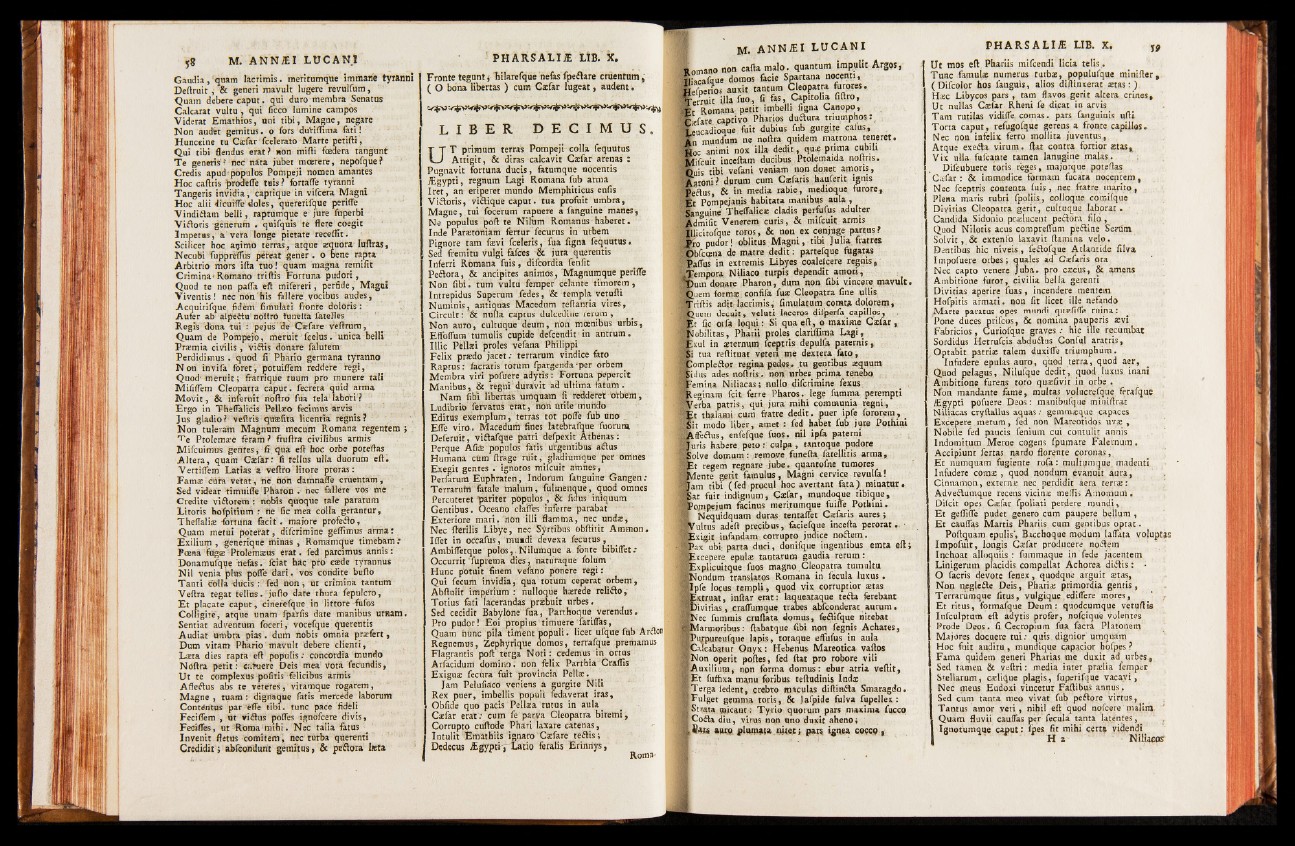 58 M. ANNÆI LUCANI
Gaudia, quam lacrimis. meritumque immane tyranni
Destruit, & generi mavult lugere revulsum,
Quam debere caput. qui duro membra Senatus
Calcarat vultu, qui sicco lumine campos
Viderat Emathios, uni tibi, Magne, negare
Non audet gemitus. o sors durissima fati!
Huncine tu Cæsar scelerato Marte petisti,
Qui tibi flendus erat? non misti fœdera tangunt
Te generis? nec nata jubet mœrere, neposque?
Credis apud populos Pompeji nomen amantes
Hoc castris prodesse tuis? fortasse tyranni
Tangeris invidia, captique in viscera Magni
Hoc alii licuisse doles, quererisque perisse
Vindictam belli, raptumque e jure superbi
Victoris generum. quisquis te flere coegit
Impetus, a vera longe pietate recessit.
Scilicet hoc animo terras, atque æquora lustras,
Necubi suppressus pereat gener. o bene rapta
Arbitrio mors ista tuo! quam magna remisit
Crimina Romano tristis Fortuna pudori,
Quod te non passa est misereri, perfide, Magni
Viventis! nec non his fallere vocibus audes,
Acquirisque fidem simulati fronte doloris:
Aufer ab aspectu nostro funesta satelles
Regis dona tui: pejus de Cæsare vestrum,
Quam de Pompejo, meruit scelus. unica belli
Præmia civilis, victis donare salutem
Perdidimus. quod si Phario germana tyranno
Non invisa foret, potuissem reddere regi,
Quod meruit; fratrique tuum pro munere tali
Misissem Cleopatra caput. secreta quid arma
Movit, & inseruit nostro sua tela labori?
Ergo in Thessalicis Pellæo fecimus arvis
Jus gladio? vestris quæsita licentia regnis?
Non tuleram Magnum mecum Romana regentem;
Te Ptolemæe feram? frustra civilibus armis
Miscuimus gentes, si qua est hoc orbe potestas
Altera, quam Cæsar: si tellus ulla duorum est.
Vertissem Latias a vestro litore proras:
Famæ cura vetat, ne non damnasse cruentam,
Sed videar timuisse Pharon. nec fallere vos me
Credite victorem: nobis quoque tale paratum
Litoris hospitium: ne sic mea colla gerantur,
Thessaliæ fortuna facit. majore profecto,
Quam metui poterat, discrimine gessimus arma:
Exilium, generique minas, Romamque timebam:
Pœna fugæ Ptolemæus erat. sed parcimus annis:
Donamusque nefas. sciat hac pro cæde tyrannus
Nil venia plus posse dari. vos condite busto
Tanti colla ducis: sed non, ut crimina tantum
Vestra tegat tellus. justo date thura sepulcro,
Et placate caput, cineresque in littore fusos
Colligite, atque unam sparsis date manibus urnam.
Sentiat adventum soceri, vocesque querentis
Audiat umbra pias. dum nobis omnia præfert,
Dum vitam Phario mavult debere clienti,
Læta dies rapta est populis: concordia mundo
Nostra perit: caruere Deis mea vota secundis,
Ut te complexus positis felicibus armis
Affectus abs te veteres, vitamque rogarem,
Magne, tuam: dignaque satis mercede laborum
Contentus par esse tibi. tunc pace fideli
Fecissem, ut victus posses ignoscere divis,
Fecisses, ut Roma mihi. Nec talia fatus
Invenit fletus comitem, nec turba querenti
Credidit; abscondunt gemitus, & pectora læta
PHARSALIÆ LIB. X.
Fronte tegunt, hilaresque nefas spectare cruentum,
(O bona libertas) cum Cæsar lugeat, audent.
LIBER DECIMUS.
UT primum terras Pompeji colla sequutus
Attigit, & diras calcavit Cæsar arenas:
Pugnavit fortuna ducis, fatumque nocentis
Ægypti, regnum Lagi Romana sub arma
Iret, an eriperet mundo Memphiticus ensis
Victoris, victique caput. tua profuit umbra,
Magne, tui socerum rapuere a sanguine manes,
Ne populus post te Nilum Romanus haberet.
Inde Parætoniam fertur securus in urbem
Pignore tam sævi sceleris, sua signa sequutus.
Sed fremitu vulgi fasces & jura querentis
Inferri Romana suis, discordia sensit
Pectora, & ancipites animos, Magnumque perisse
Non sibi. tum vultu semper celante timorem,
Intrepidus Superum sedes, & templa vetusti
Numinis, antiquas Macedum testantia vires,
Circuit: & nulla captus dulcedine rerum,
Non auro, cultuque deum, non mœnibus urbis,
Effossum tumulis cupide descendit in antrum.
Illic Pellæi proles vesana Philippi
Felix prædo jacet: terrarum vindice fato
Raptus: sacratis totum spargenda per orbem
Membra viri posuere adytis: Fortuna pepercit
Manibus, & regni duravit ad ultima fatum.
Nam sibi libertas umquam si redderet orbem,
Ludibrio servatus erat, non utile mundo
Editus exemplum, terras tot posse sub uno
Esse viro. Macedum fines latebrasque suorum
Deseruit, victasque patri despexit Athenas:
Perque Asiæ populos fatis urgentibus actus
Humana cum strage ruit, gladiumque per omnes
Exegit gentes. ignotos miscuit amnes,
Persarum Euphraten, Indorum sanguine Gangen:
Terrarum fatale malum, fulmenque, quod omnes
Percuteret pariter populos, & sidus iniquum
Gentibus. Oceano classes inferre parabat
Exteriore mari. non illi flamma, nec undæ,
Nec sterilis Libye, nec Syrtibus obstitit Ammon.
Isset in occasus, mundi devexa secutus,
Ambissetque polos, Nilumque a fonte bibisset:
Occurrit suprema dies, naturaque solum
Hunc potuit finem vesano ponere regi:
Qui secum invidia, qua totum ceperat orbem,
Abstulit imperium: nulloque hærede relicto,
Totius fati lacerandas præbuit urbes.
Sed cecidit Babylone sua, Parthoque verendus.
Pro pudor! Eoi propius timuere sarissas,
Quam nunc pila timent populi. licet usque sub Arcton
Regnemus, Zephyrique domos, terrasque premamus
Flagrantis post terga Noti: cedemus in ortus
Arsacidum domino. non felix Parthia Crassis
Exiguæ secura fuit provincia Pellæ.
Jam Pelusiaco veniens a gurgite Nili
Rex puer, imbellis populi sedaverat iras,
Obside quo pacis Pellæa tutus in aula
Cæsar erat: cum se parva Cleopatra biremi,
Corrupto custode Phari laxare catenas,
Intulit Emathiis ignaro Cæsare tectis;
Dedecus Ægypti, Latio feralis Erinnys,
Roma-
M. ANNÆI LUCANI
Romano non casta malo. quantum impulit Argos,
Iliacasque domos facie Spartana nocenti,
Hesperios auxit tantum Cleopatra furores.
Terruit illa suo, si fas, Capitolia sistro,
Et Romana petit imbelli signa Canopo,
Cæsare captivo Pharios ductura triumphos:
Leucadioque fuit dubius sub gurgite casus,
An mundum ne nostra quidem matrona teneret.
Hoc animi nox illa dedit, quæ prima cubili
Miscuit incestam ducibus Ptolemaida nostris.
Quis tibi vesani veniam non donet amoris,
Antoni? durum cum Cæsaris hauserit ignis
Pectus, & in media rabie, medioque furore,
Et Pompejanis habitata manibus aula,
Sanguine Thessalicæ cladis perfusus adulter
Admisit Venerem curis, & miscuit armis
Illicitosque toros, & non ex conjuge partus?
Pro pudor! oblitus Magni, tibi Julia fratres
Obscœna de matre dedit: partesque fugatas
Passus in extremis Libyes coalescere regnis,
Tempora Niliaco turpis dependit amori,
Dum donare Pharon, dum non sibi vincere mavult.
Quem formæ confisa suæ Cleopatra sine ullis
Tristis adit lacrimis, simulatum comta dolorem,
Quem decuit, veluti laceros dispersa capillos,
Et sic orsa loqui: Si qua est, o maxime Cæsar,
Nobilitas, Pharii proles clarissima Lagi,
Exul in æternum sceptris depulsa paternis,
Si tua restituat veteri me dextera fato,
Complector regina pedes. tu gentibus æquum
Sidus ades nostris. non urbes prima tenebo
Femina Niliacas: nullo discrimine sexus
Reginam scit ferre Pharos. lege summa perempti
Verba patris, qui jura mihi communia regni,
Et thalami cum fratre dedit. puer ipse sororem,
Sit modo liber, amet: sed habet sub jure Pothini
Affectus, ensesque suos. nil ipsa paterni
Juris habere peto: culpa, tantoque pudore
Solve domum: remove funesta satellitis arma,
Et regem regnare jube. quantosne tumores
Mente gerit famulus, Magni cervice revulsa!
Jam tibi (sed procul hoc avertant fata) minatur.
Sat fuit indignum, Cæsar, mundoque tibique,
Pompejum facinus meritumque fuisse Pothini.
Nequidquam duras tentasset Cæsaris aures;
Vultus adest precibus, faciesque incesta perorat.
Exigit infandam corrupto judice noctem.
Pax ubi parta duci, donisque ingentibus emta est;
Excepere epulæ tantarum gaudia rerum:
Explicuitque suos magno Cleopatra tumultu
Nondum translatos Romana in secula luxus.
Ipse locus templi, quod vix corruptior ætas
Extruat, instar erat: laqueataque tecta ferebant
Divitias, crassumque trabes absconderat aurum.
Nec summis crustata domus, sectisque nitebat
Marmoribus: stabatque sibi non segnis Achates,
Purpureusque lapis, totaque effusus in aula
Calcabatur Onyx: Hebenus Mareotica vastos
Non operit postes, sed stat pro robore vili
Auxilium, non forma domus: ebur atria vestit,
Et suffixa manu foribus testudinis Indæ
Terga sedent, crebro maculas distincta Smaragdo.
Fulget gemma toris, & Jaspide fulva supellex:
Strata micant: Tyrio quorum pars maxima succo
Cocta diu, virus non uno duxit aheno;
Pars auro plumata nitet; pars ignea cocco,
PHARSALIÆ LIB. X. 59
Ut mos est Phariis miscendi licia telis.
Tunc famulæ numerus turbæ, populusque minister,
(Discolor hos sanguis, alios distinxerat ætas:)
Hæc Libycos pars, tam flavos gerit altera crines,
Ut nullas Cæsar Rheni se dicat in arvis
Tam rutilas vidisse comas. pars sanguinis usti
Torta caput, refugosque gerens a fronte capillos.
Nec non infelix ferro mollita juventus,
Atque exsecta virum. stat contra fortior ætas,
Vix ulla fuscante tamen lanugine malas.
Discubuere toris reges, majorque potestas
Cæsar: & immodice formam fucata nocentem,
Nec sceptris contenta suis, nec fratre marito,
Plena maris rubri spoliis, colloque comisque
Divitias Cleopatra gerit, cultuque laborat.
Candida Sidonio prælucent pectora filo,
Quod Nilotis acus compressum pectine Serum
Solvit, & extenso laxavit stamina velo.
Dentibus hic niveis, sectosque Atlantide silva
Imposuere orbes; quales ad Cæsaris ora
Nec capto venere Juba. pro cæcus, & amens
Ambitione furor, civilia bella gerenti
Divitias aperire suas, incendere mentem
Hospitis armati. non sit licet ille nefando
Marte paratus opes mundi quæsisse ruina:
Pone duces priscos, & nomina pauperis ævi
Fabricios, Curiosque graves: hic ille recumbat
Sordidus Hetruscis abductus Consul aratris,
Optabit patriæ talem duxisse triumphum.
Infudere epulas auro, quod terra, quod aer,
Quod pelagus, Nilusque dedit, quod luxus inani
Ambitione furens toto quæsivit in orbe.
Non mandante fame, multas volucresque ferasque
Ægypti posuere Deos: manibusque ministrat
Niliacas crystallus aquas: gemmæque capaces
Excepere merum, sed non Mareotidos uvæ,
Nobile sed paucis senium cui contulit annis
Indomitum Meroe cogens spumare Falernum.
Accipiunt sertas nardo florente coronas,
Et numquam fugiente rosa: multumque madenti
Infudere comæ, quod nondum evanuit aura,
Cinnamon, externæ nec perdidit aera terræ:
Advectumque recens vicinæ messis Amomum.
Discit opes Cæsar spoliati perdere mundi,
Et gessisse pudet genero cum paupere bellum,
Et caussas Martis Phariis cum gentibus optat.
Postquam epulis, Bacchoque modum lassata voluptas
Imposuit, longis Cæsar producere noctem
Inchoat alloquiis: summaque in sede jacentem
Linigerum placidis compellat Achorea dictis:
O sacris devote senex, quodque arguit ætas,
Non neglecte Deis, Phariæ primordia gentis,
Terrarumque situs, vulgique edissere mores,
Et ritus, formasque Deum: quodcumque vetustis
Insculptum est adytis profer, noscique volentes
Prode Deos. si Cecropium sua sacra Platonem
Majores docuere tui: quis dignior umquam
Hoc fuit auditu, mundique capacior hospes?
Fama quidem generi Pharias me duxit ad urbes,
Sed tamen & vestri: media inter prælia semper
Stellarum, cælique plagis, superisque vacavi,
Nec meus Eudoxi vincetur Fastibus annus.
Sed cum tanta meo vivat sub pectore virtus,
Tantus amor veri, nihil est quod noscere malim
Quam fluvii caussas per secula tanta latentes,
Ignotumque caput: spes sit mihi certa videndi
H 2 Niliacos